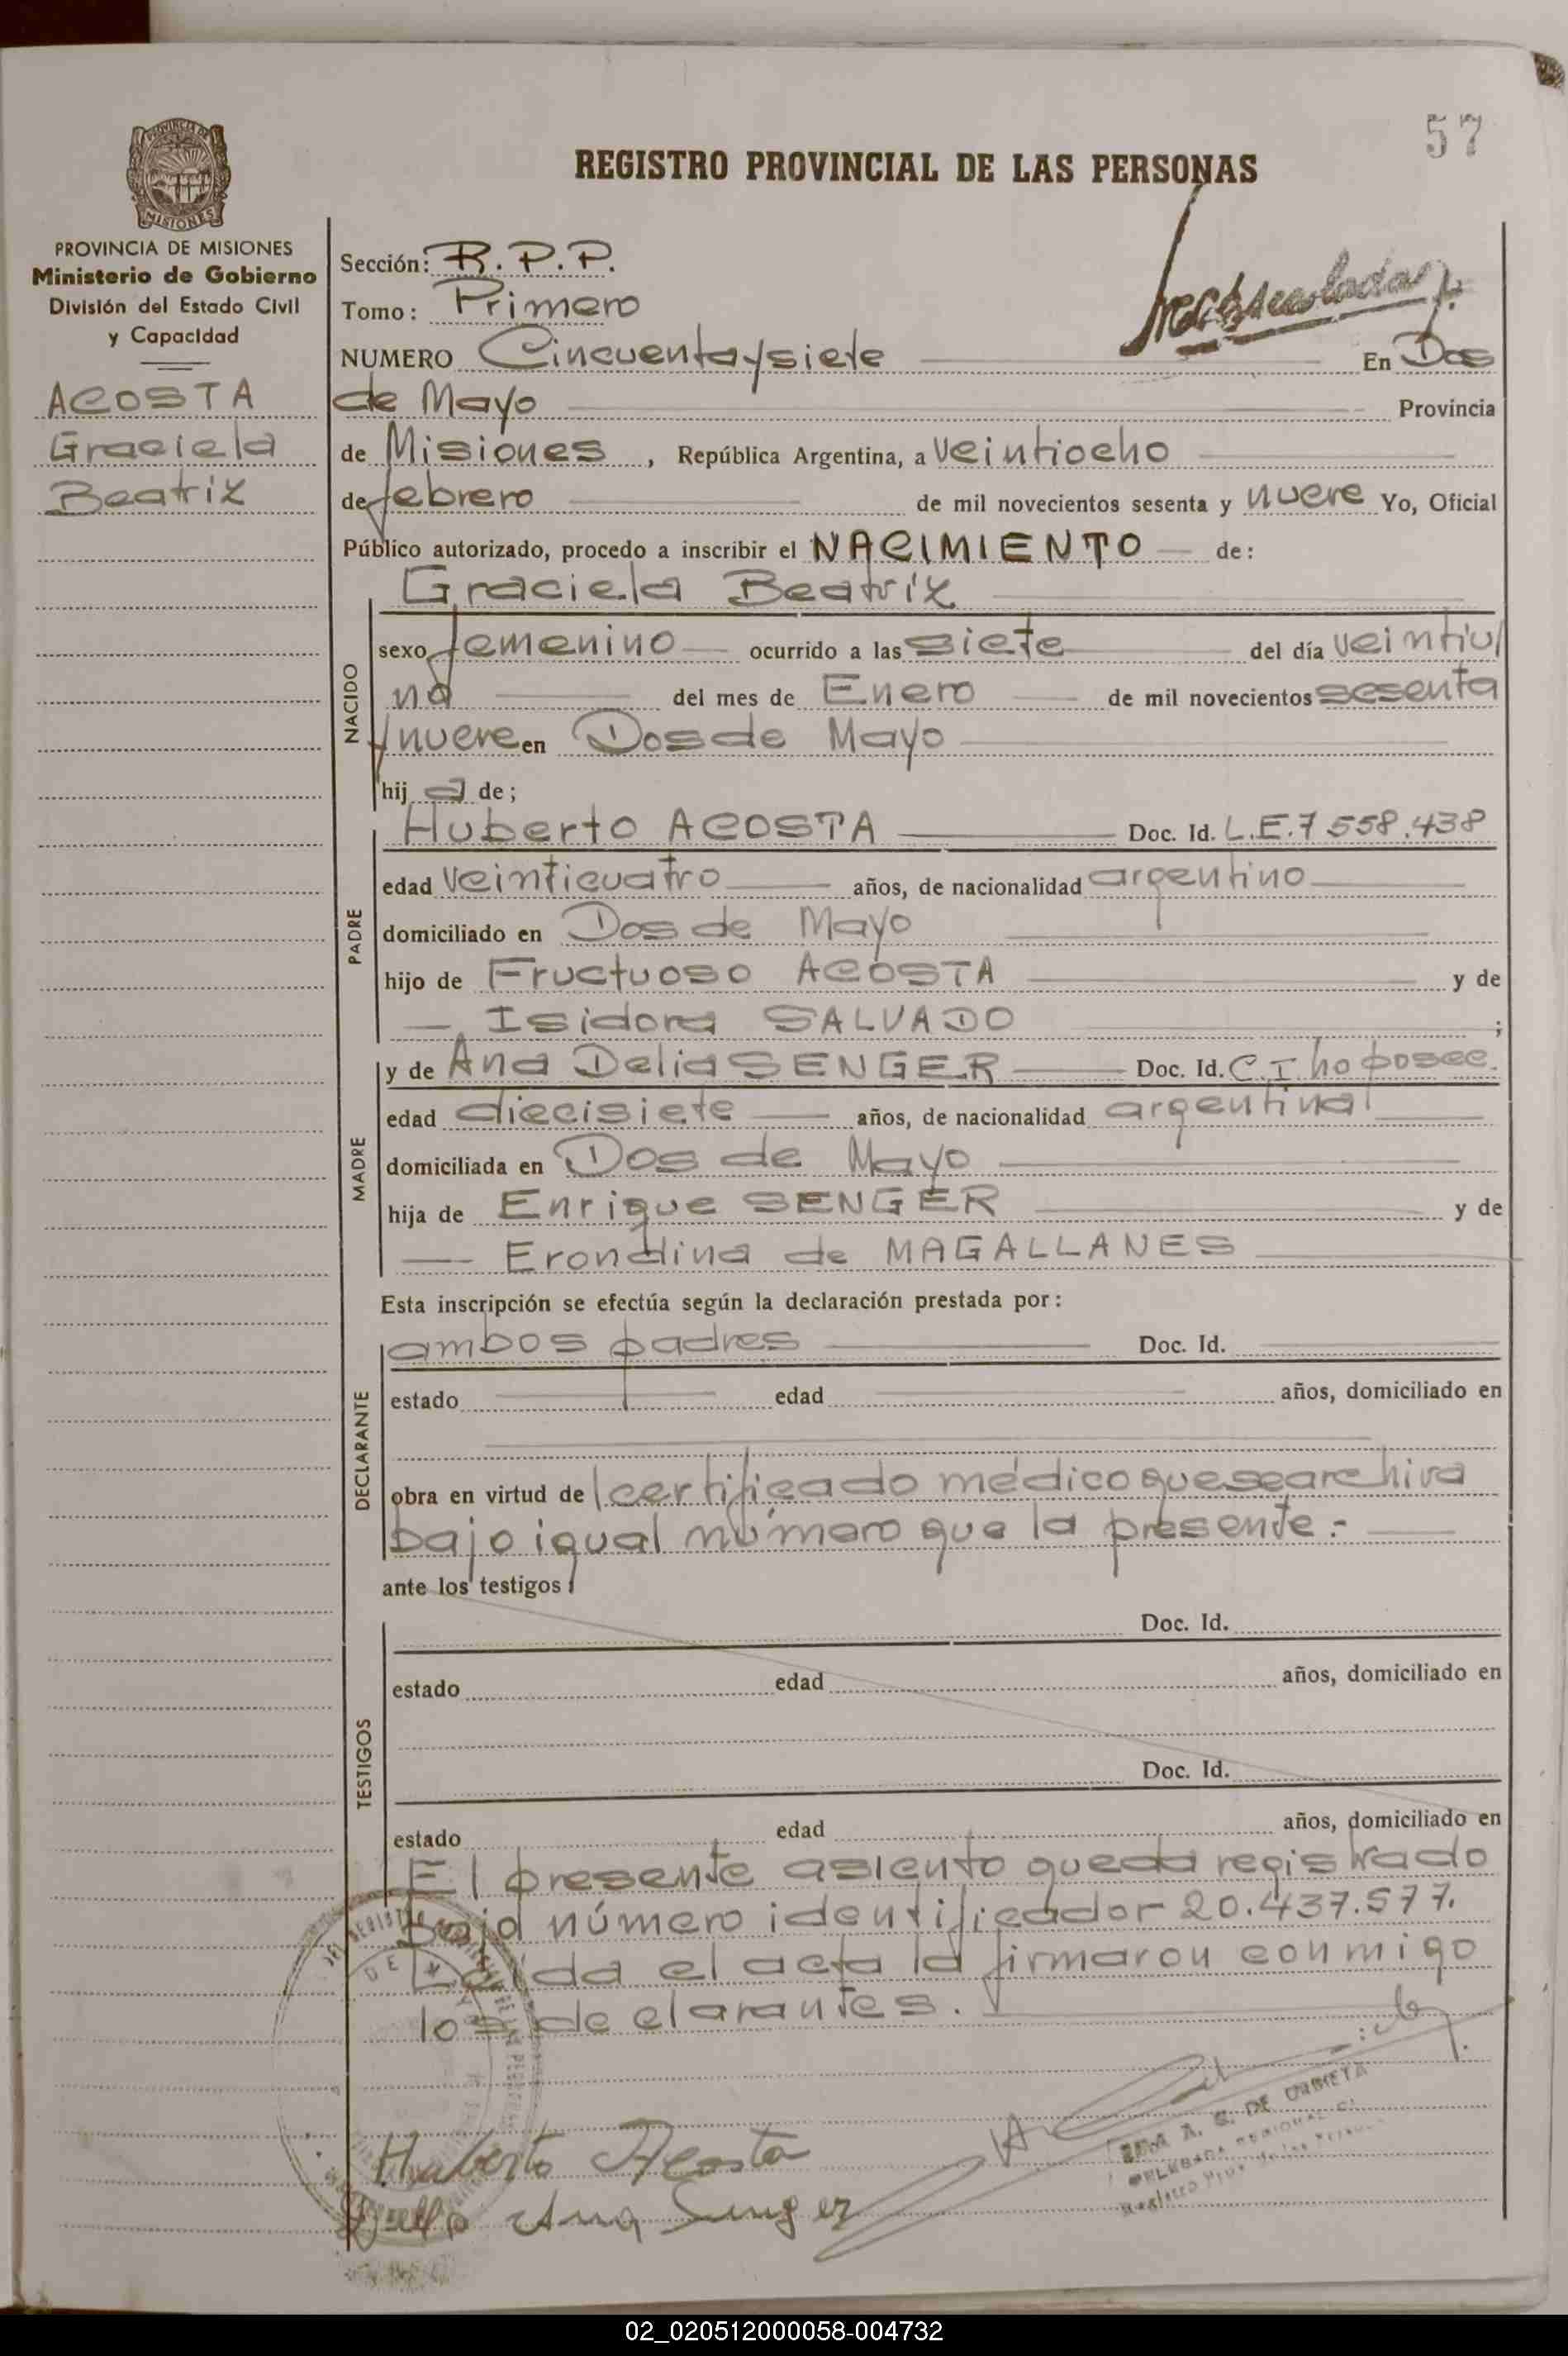 57
REGISTRO PROVINCIAL DE LAS PERSONAS
PROVINCIA DE MISIONES
Ministerio de Gobierno
División del Estado Civil
y Capacidad
ACOSTA
Graciela
Beatriz
Sección: R.P.P.
Tomo: Primero
NUMERO Cincuenta y siete En Dos
de Mayo Provincia
de Misiones, República Argentina, a veintiocho
de febrero de mil novecientos sesenta y nueve Yo, Oficial
Público autorizado, procedo a inscribir el NACIMIENTO de:
Graciela Beatriz
NACIDO
sexo femenino ocurrido a las siete del día veintiu
no del mes de Enero de mil novecientos sesenta
y nueve en Dos de Mayo
hij a de;
PADRE
Huberto ACOSTA Doc. Id. L.E. 7 558.438
edad veinticuatro años, de nacionalidad argentino
domiciliado en Dos de Mayo
hijo de Fructuoso ACOSTA y de
Isidora SALVADO ;
MADRE
y de Ana Delia SENGER Doc. Id. C.I. no posee.
edad diecisiete años, de nacionalidad argentina
domiciliada en Dos de Mayo
hija de Enrique SENGER y de
Erondina de MAGALLANES
Esta inscripción se efectúa según la declaración prestada por:
DECLARANTE
ambos padres Doc. Id.
estado edad años, domiciliado en
obra en virtud de l certificado médico que se archiva
bajo igual número que la presente.-
ante los testigos
TESTIGOS
Doc. Id.
estado edad años, domiciliado en
Doc. Id.
estado edad años, domiciliado en
El presente asiento queda registrado
bajo número identificador 20.437.577.
Leida el acta la firmaron conmigo
los declarantes.
Huberto Acosta
Ana Senger
02_020512000058-004732